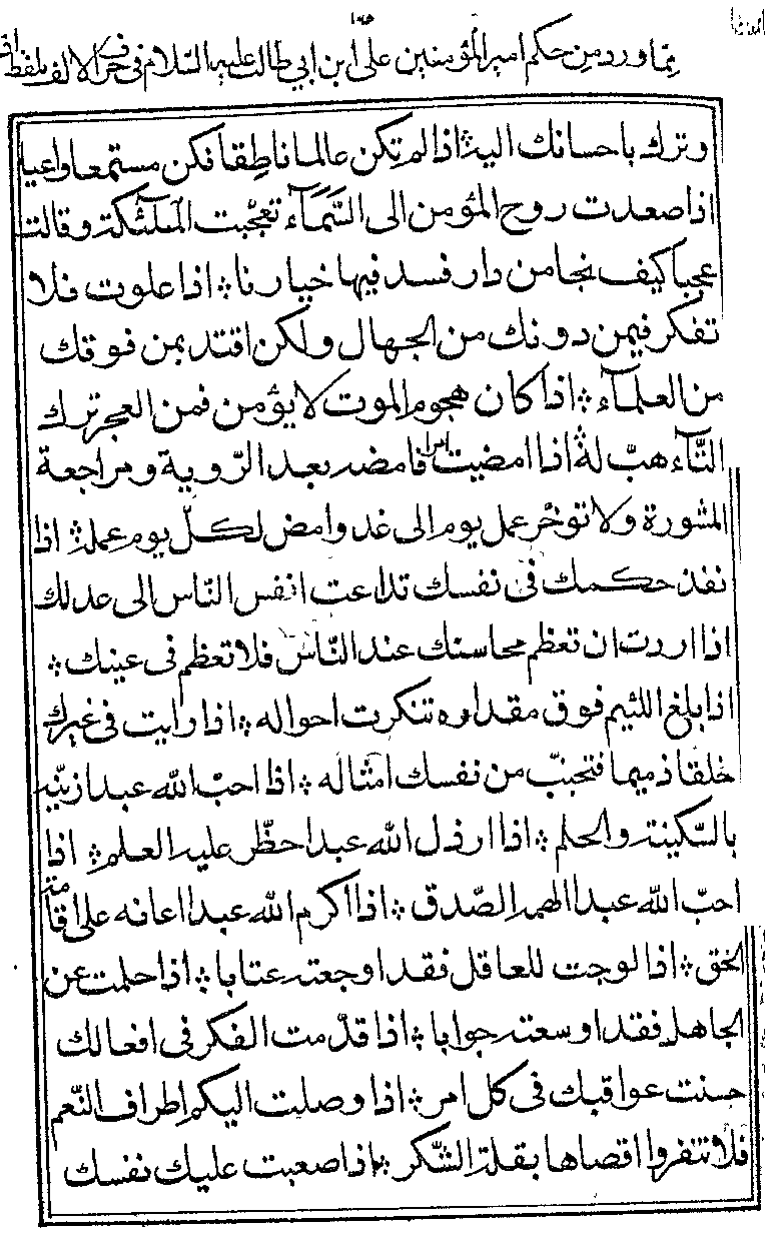 مما ورد من حكم امير المؤمنين على ابن ابي طالب عليه السلام فى حرف الالف بلفظ اذا
وترك باحسانك اليه اذا لم تكن عالما ناطقا فكن مستمعا واعيا
اذا صعدت روح المؤمن الى السَّمَاء تعجّبت الملئكة وقالت
عجبا كيف نجا من دار فسد فيها خيارنا اذا علوت فلا
تفكر فيمن دونك من الجهال ولكن اقتد بمن فوقك
من العلمآء اذا كان هجوم الموت لا يؤمن فمن العجز ترك
التّأهّب له اذا امضيت امرا فامضه بعد الرّوية ومراجعة
المشورة ولا تؤخّر عمل يوم الى غد وامض لكلّ يوم عمله اذا
نفذ حكمك فى نفسك تداعت انفس النّاس الى عدلك
اذا اردت ان تعظم محاسنك عند النّاس فلا تعظم فى عينك
اذا بلغ اللئيم فوق مقداره تنكرت احواله اذا رايت فى غيرك
خلقا ذميما فتجنّب من نفسك امثاله اذا احبّ الله عبدا زيّنه
بالسّكينة والحلم اذا ارذل الله عبدا حظّر عليه العلم اذا
احبّ الله عبدا الهمه الصّدق اذا اكرم الله عبدا اعانه على اقامة
الحق اذا لوحت للعاقل فقد اوجعته عتابا اذا حلمت عن
الجاهل فقد اوسعته جوابا اذا قدّمت الفكر فى افعالك
حسنت عواقبك فى كل امر اذا وصلت اليكم اطراف النّعم
فلا تنفروا اقصاها بقلة الشّكر اذا صعبت عليك نفسك